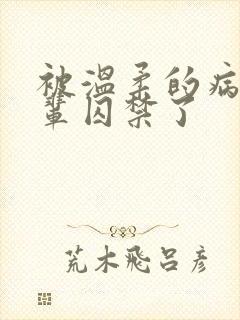 被温柔的病
輩囚禁了
荒木飛呂彦